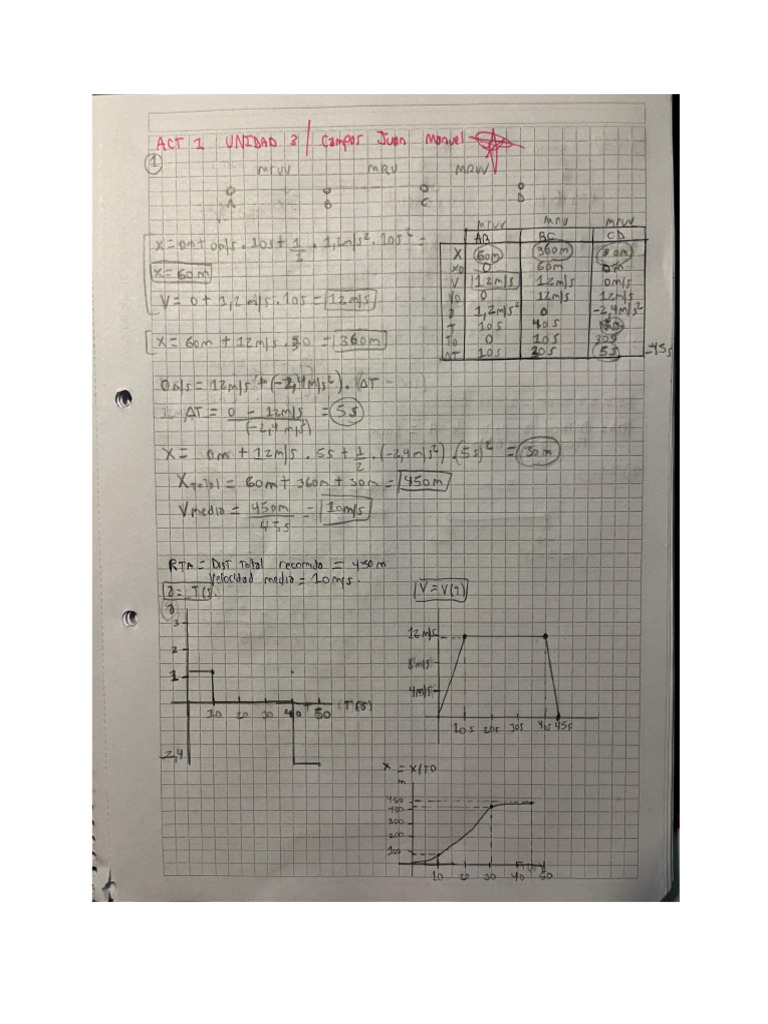 ACT 1 UNIDAD 3 / Campos Juan Manuel
1
mruv MRU MRUV
A B C D
X = 0m + 0m/s . 10s + 1/2 . 1,2m/s² . 10s² =
X = 60m
V = 0 + 1,2 m/s . 10s = 12m/s
X = 60m + 12m/s . 30 = 360m
mruv mru mruv
AB BC CD
X 60m 360m 30m
X0 0 60m
V 12m/s 12m/s 0m/s
V0 0 12m/s 12m/s
a 1,2m/s² 0 -2,4m/s²
T 10s 40s
T0 0 10s 30s
ΔT 10s 30s 5s =45s
0m/s = 12m/s + (-2,4m/s²) . ΔT
ΔT = 0 - 12m/s / (-2,4 m/s²) = 5s
X = 0m + 12m/s . 5s + 1/2 . (-2,4m/s²) . (5s)² = 30m
XTotal = 60m + 360m + 30m = 450m
Vmedia = 450m / 45s = 10m/s
RTA = Dist Total recorrida = 450m
Velocidad media = 10m/s.
a = T(s)
V = V(T)
a
3
2
1
10 20 30 40 50 (T(s)
-2,4
12m/s
8m/s
4m/s
10s 20s 30s 40s 45s
X = X(T)
m
450
400
300
200
100
10 20 30 40 50